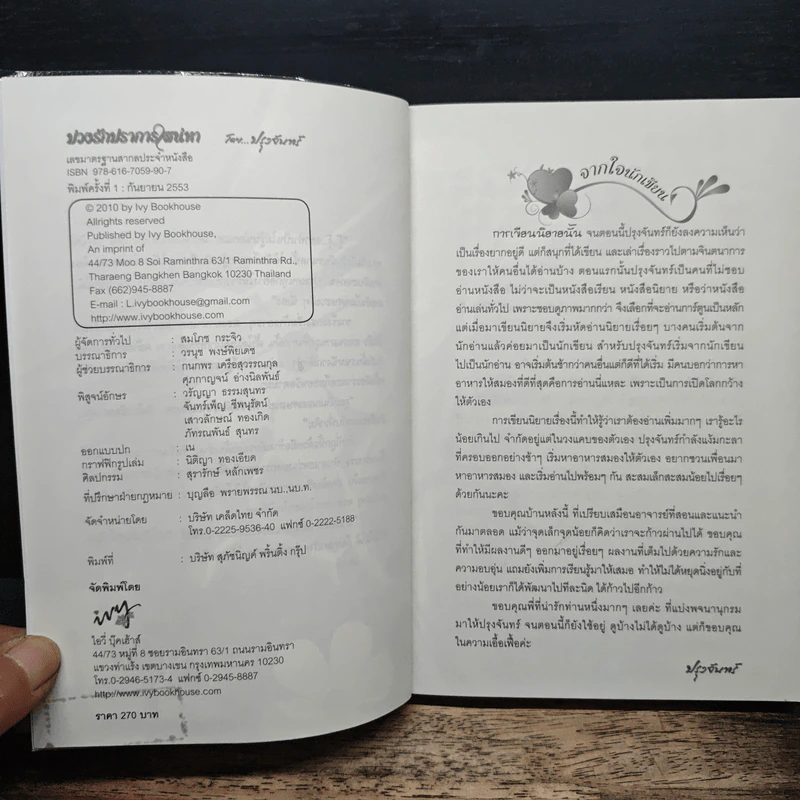 บ่วงรักปราการเสน่หา โดย... ปรุงจันทร์
เลขมาตรฐานสากลประจำหนังสือ
ISBN 978-616-7059-90-7
พิมพ์ครั้งที่ 1 : กันยายน 2553
© 2010 by Ivy Bookhouse
Allrights reserved
Published by Ivy Bookhouse,
An imprint of
44/73 Moo 8 Soi Raminthra 63/1 Raminthra Rd.,
Tharaeng Bangkhen Bangkok 10230 Thailand
Fax (662)945-8887
E-mail : L.ivybookhouse@gmail.com
http://www.ivybookhouse.com
ผู้จัดการทั่วไป : สมโภช กระจิว
บรรณาธิการ : วรนุช พงษ์พิยเดช
ผู้ช่วยบรรณาธิการ : กนกพร เครือสุวรรณกุล
ศุภกาญจน์ อ่างนิลพันธ์
พิสูจน์อักษร : วรัญญา ธรรมสุนทร
จันทร์เพ็ญ ชีพนุรัตน์
เสาวลักษณ์ ทองเกิด
ภัทรณพันธ์ สุนทร
ออกแบบปก : เน
กราฟฟิครูปเล่ม : นิติญา ทองเอียด
ศิลปกรรม : สุรารักษ์ หลักเพชร
ที่ปรึกษาฝ่ายกฎหมาย : บุญลือ พรายพรรณ นบ.,นบ.ท.
จัดจำหน่ายโดย : บริษัท เคล็ดไทย จำกัด
โทร.0-2225-9536-40 แฟกซ์ 0-2222-5188
พิมพ์ที่ : บริษัท สุภัชนิญค์ พริ้นติ้ง กรุ๊ป
จัดพิมพ์โดย
ivy
ไอวี่ บุ๊คเฮ้าส์
44/73 หมู่ที่ 8 ซอยรามอินทรา 63/1 ถนนรามอินทรา
แขวงท่าแร้ง เขตบางเขน กรุงเทพมหานคร 10230
โทร.0-2946-5173-4 แฟกซ์ 0-2945-8887
http://www.ivybookhouse.com
ราคา 270 บาท
จากใจนักเขียน
การเขียนนิยายนั้น จนตอนนี้ปรุงจันทร์ก็ยังลงความเห็นว่า
เป็นเรื่องยากอยู่ดี แต่ก็สนุกที่ได้เขียน และเล่าเรื่องราวไปตามจินตนาการ
ของเราให้คนอื่นได้อ่านบ้าง ตอนแรกนั้นปรุงจันทร์เป็นคนที่ไม่ชอบ
อ่านหนังสือ ไม่ว่าจะเป็นหนังสือเรียน หนังสือนิยาย หรือว่าหนังสือ
อ่านเล่นทั่วไป เพราะชอบดูภาพมากกว่า จึงเลือกที่จะอ่านการ์ตูนเป็นหลัก
แต่เมื่อมาเขียนนิยายจึงเริ่มหัดอ่านนิยายเรื่อยๆ บางคนเริ่มต้นจาก
นักอ่านแล้วค่อยมาเป็นนักเขียน สำหรับปรุงจันทร์เริ่มจากนักเขียน
ไปเป็นนักอ่าน อาจเริ่มต้นช้ากว่าคนอื่นแต่ก็ดีที่ได้เริ่ม มีคนบอกว่าการหา
อาหารให้สมองที่ดีที่สุดคือการอ่านนี่แหละ เพราะเป็นการเปิดโลกกว้าง
ให้ตัวเอง
การเขียนนิยายเรื่องนี้ทำให้รู้ว่าเราต้องอ่านเพิ่มมากๆ เรารู้อะไร
น้อยเกินไป จำกัดอยู่แต่ในวงแคบของตัวเอง ปรุงจันทร์กำลังแง้มกะลา
ที่ครอบออกอย่างช้าๆ เริ่มหาอาหารสมองให้ตัวเอง อยากชวนเพื่อนมา
หาอาหารสมอง และเริ่มอ่านไปพร้อมๆ กัน สะสมเล็กสะสมน้อยไปเรื่อยๆ
ด้วยกันนะคะ
ขอบคุณบ้านหลังนี้ ที่เปรียบเสมือนอาจารย์ที่สอนและแนะนำ
กันมาตลอด แม้ว่าจุดเล็กจุดน้อยก็คิดว่าเราจะก้าวผ่านไปได้ ขอบคุณ
ที่ทำให้มีผลงานดีๆ ออกมาอยู่เรื่อยๆ ผลงานที่เต็มไปด้วยความรักและ
ความอบอุ่น แถมยังเพิ่มการเรียนรู้มาให้เสมอ ทำให้ไม่ได้หยุดนิ่งอยู่กับที่
อย่างน้อยเราก็ได้พัฒนาไปทีละนิด ได้ก้าวไปอีกก้าว
ขอบคุณพี่ที่น่ารักท่านหนึ่งมากๆ เลยค่ะ ที่แบ่งพจนานุกรม
มาให้ปรุงจันทร์ จนตอนนี้ก็ยังใช้อยู่ ดูบ้างไม่ได้ดูบ้าง แต่ก็ขอบคุณ
ในความเอื้อเฟื้อค่ะ
ปรุงจันทร์